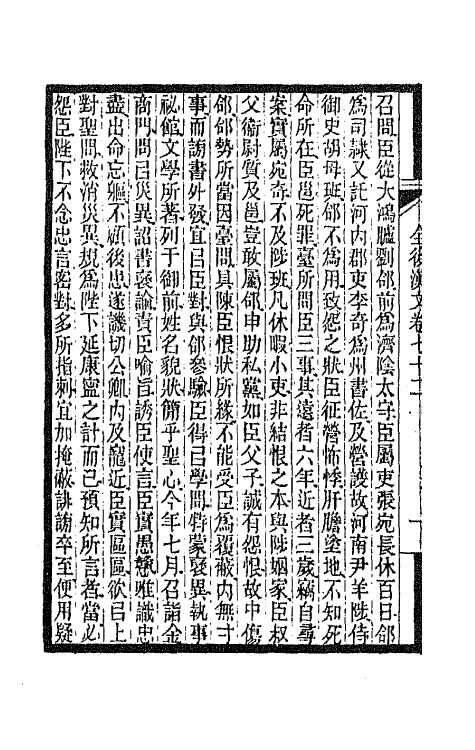 全後漢文卷七十二
召問臣從大鴻臚劉郃前爲濟陰太守臣屬吏張宛長休百日郃
爲司隸又託河内郡吏李奇爲州書佐及營護故河南尹羊陟侍
御史胡母班郃不爲用致怨之狀臣征營怖悸肝膽塗地不知死
命所在臣邕死罪臺所問臣三事其遠者六年近者三歲竊自尋
案實屬宛奇不及陟班凡休暇小吏非結恨之本與陟姻家臣叔
父衞尉質及邕豈敢屬郃申助私黨如臣父子誠有怨恨故中傷
郃郃勢所當因臺問具陳臣恨狀所緣不能受臣爲覆蔽内無寸
事而謗書外發宜㠯臣對與郃參驗臣得㠯學問特蒙襃異執事
祕館文學所著列于御前姓名貌狀簡乎聖心今年七月召詣金
商門問㠯災異詔書襃諭責臣喻旨誘臣使言臣實愚戇唯識忠
盡出命忘軀不顧後患遂譏切公卿内及寵近臣實區區欲㠯上
對聖問救消災異規爲陛下延康寧之計而已預知所言者當必
怨臣陛下不念忠言密對多所指刺宜加掩蔽誹謗卒至便用疑